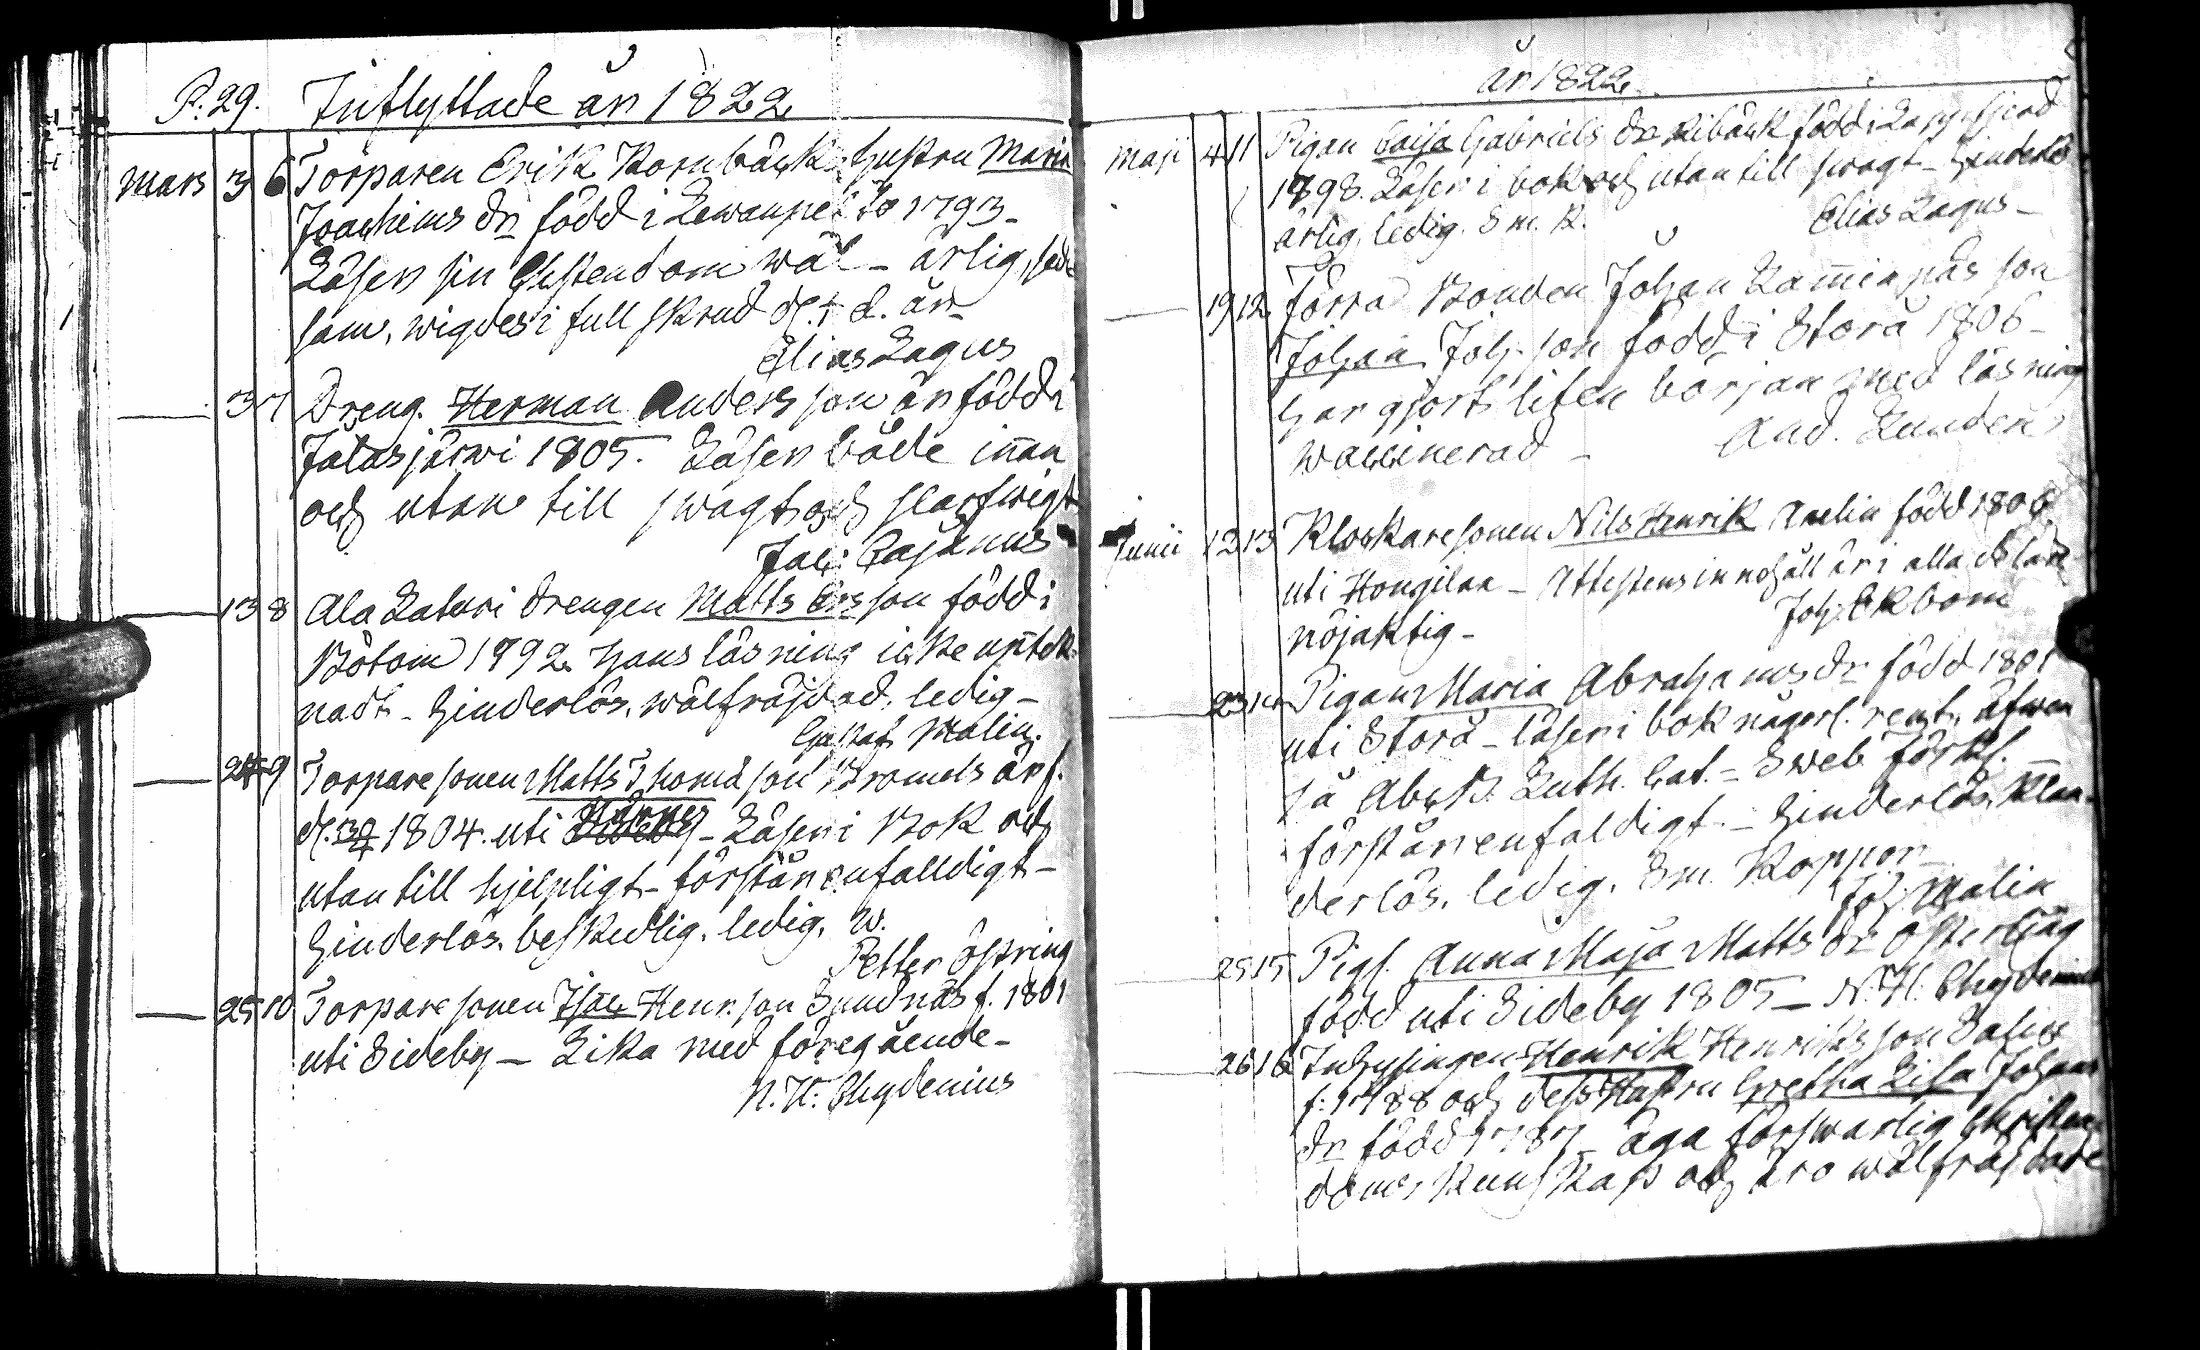 P. 29. Inflyttade år 1822
Mars 3 6 Torparen Erik Kornbäck hustru Maria
Joachims dr född i Lewanpelto 1793 -
Läser sin Chstendom wäl - ärlig, sed-
sam, wigdes i full skrud d. d. år
Elias Lagus
3 7 Dreng. Herman Anders son är född i
Jalasjärwi 1805. Läser både innan
och utan till swagt och slarfwigt
Jac: Cajanus
13 8 Ala Laturi drengen Matts Ers son född i
Bötom 1792. hans läsning icke uptek-
nadt - hinderlös, wälfräjdad, ledig -
Gustaf Malin.
24 9 Torpare sonen Matts Thoma son Bromels är f.
d. 1804. uti Härnes - Läser i Bok och
utan till hjelpligt - förstår enfalldigt -
hinderlös, beskedlig, ledig, w.
Petter Östring
25 10 Torpare sonen Isac Henr. son Sundnäs f. 1801
uti Sideby - Lika med föregående -
N. H. Chydenius
år 1822
Maji 4 11 Pigan Caisa Gabriels dr Ribäck född i Lappfjerd
1798. Läser i bok och utan till swagt - hinderlös
ärlig, ledig. S m. K.
Elias Lagus -
19 12 förra Bonden Johan Kaminpäs son
Johan Joh. son född i Storå 1806 -
har gjort liten början med läsning
waccinerad -
And. Lundén
Junii 12 13 Klockare sonen Nils Henrik Amelin född 1806
uti Hongilax - Attestens innehåll är i alla delar
nöjaktig -
Joh. Ekbom
23 14 Pigan Maria Abrahams dr född 1801
uti Storå - läser i bok någorl. rent, äfwen
så Abck. Luth. Cat. = Sweb. förkl.
förstår enfaldigt - hinderlös, klan-
derlös, ledig. Sm. Koppor -
Joh. Malin
25 15 Pigf. Anna Maja Matts dr Österljäg
född uti Sideby 1805 - N. H. Chydenius
26 16 Inhysingen Henrik Henriks son Salin
f. 1788 och dess Hustru Gretha Lisa Johans
dr född 1787 - äga förswarlig Christen-
doms kunskap och äro wälfräjdade